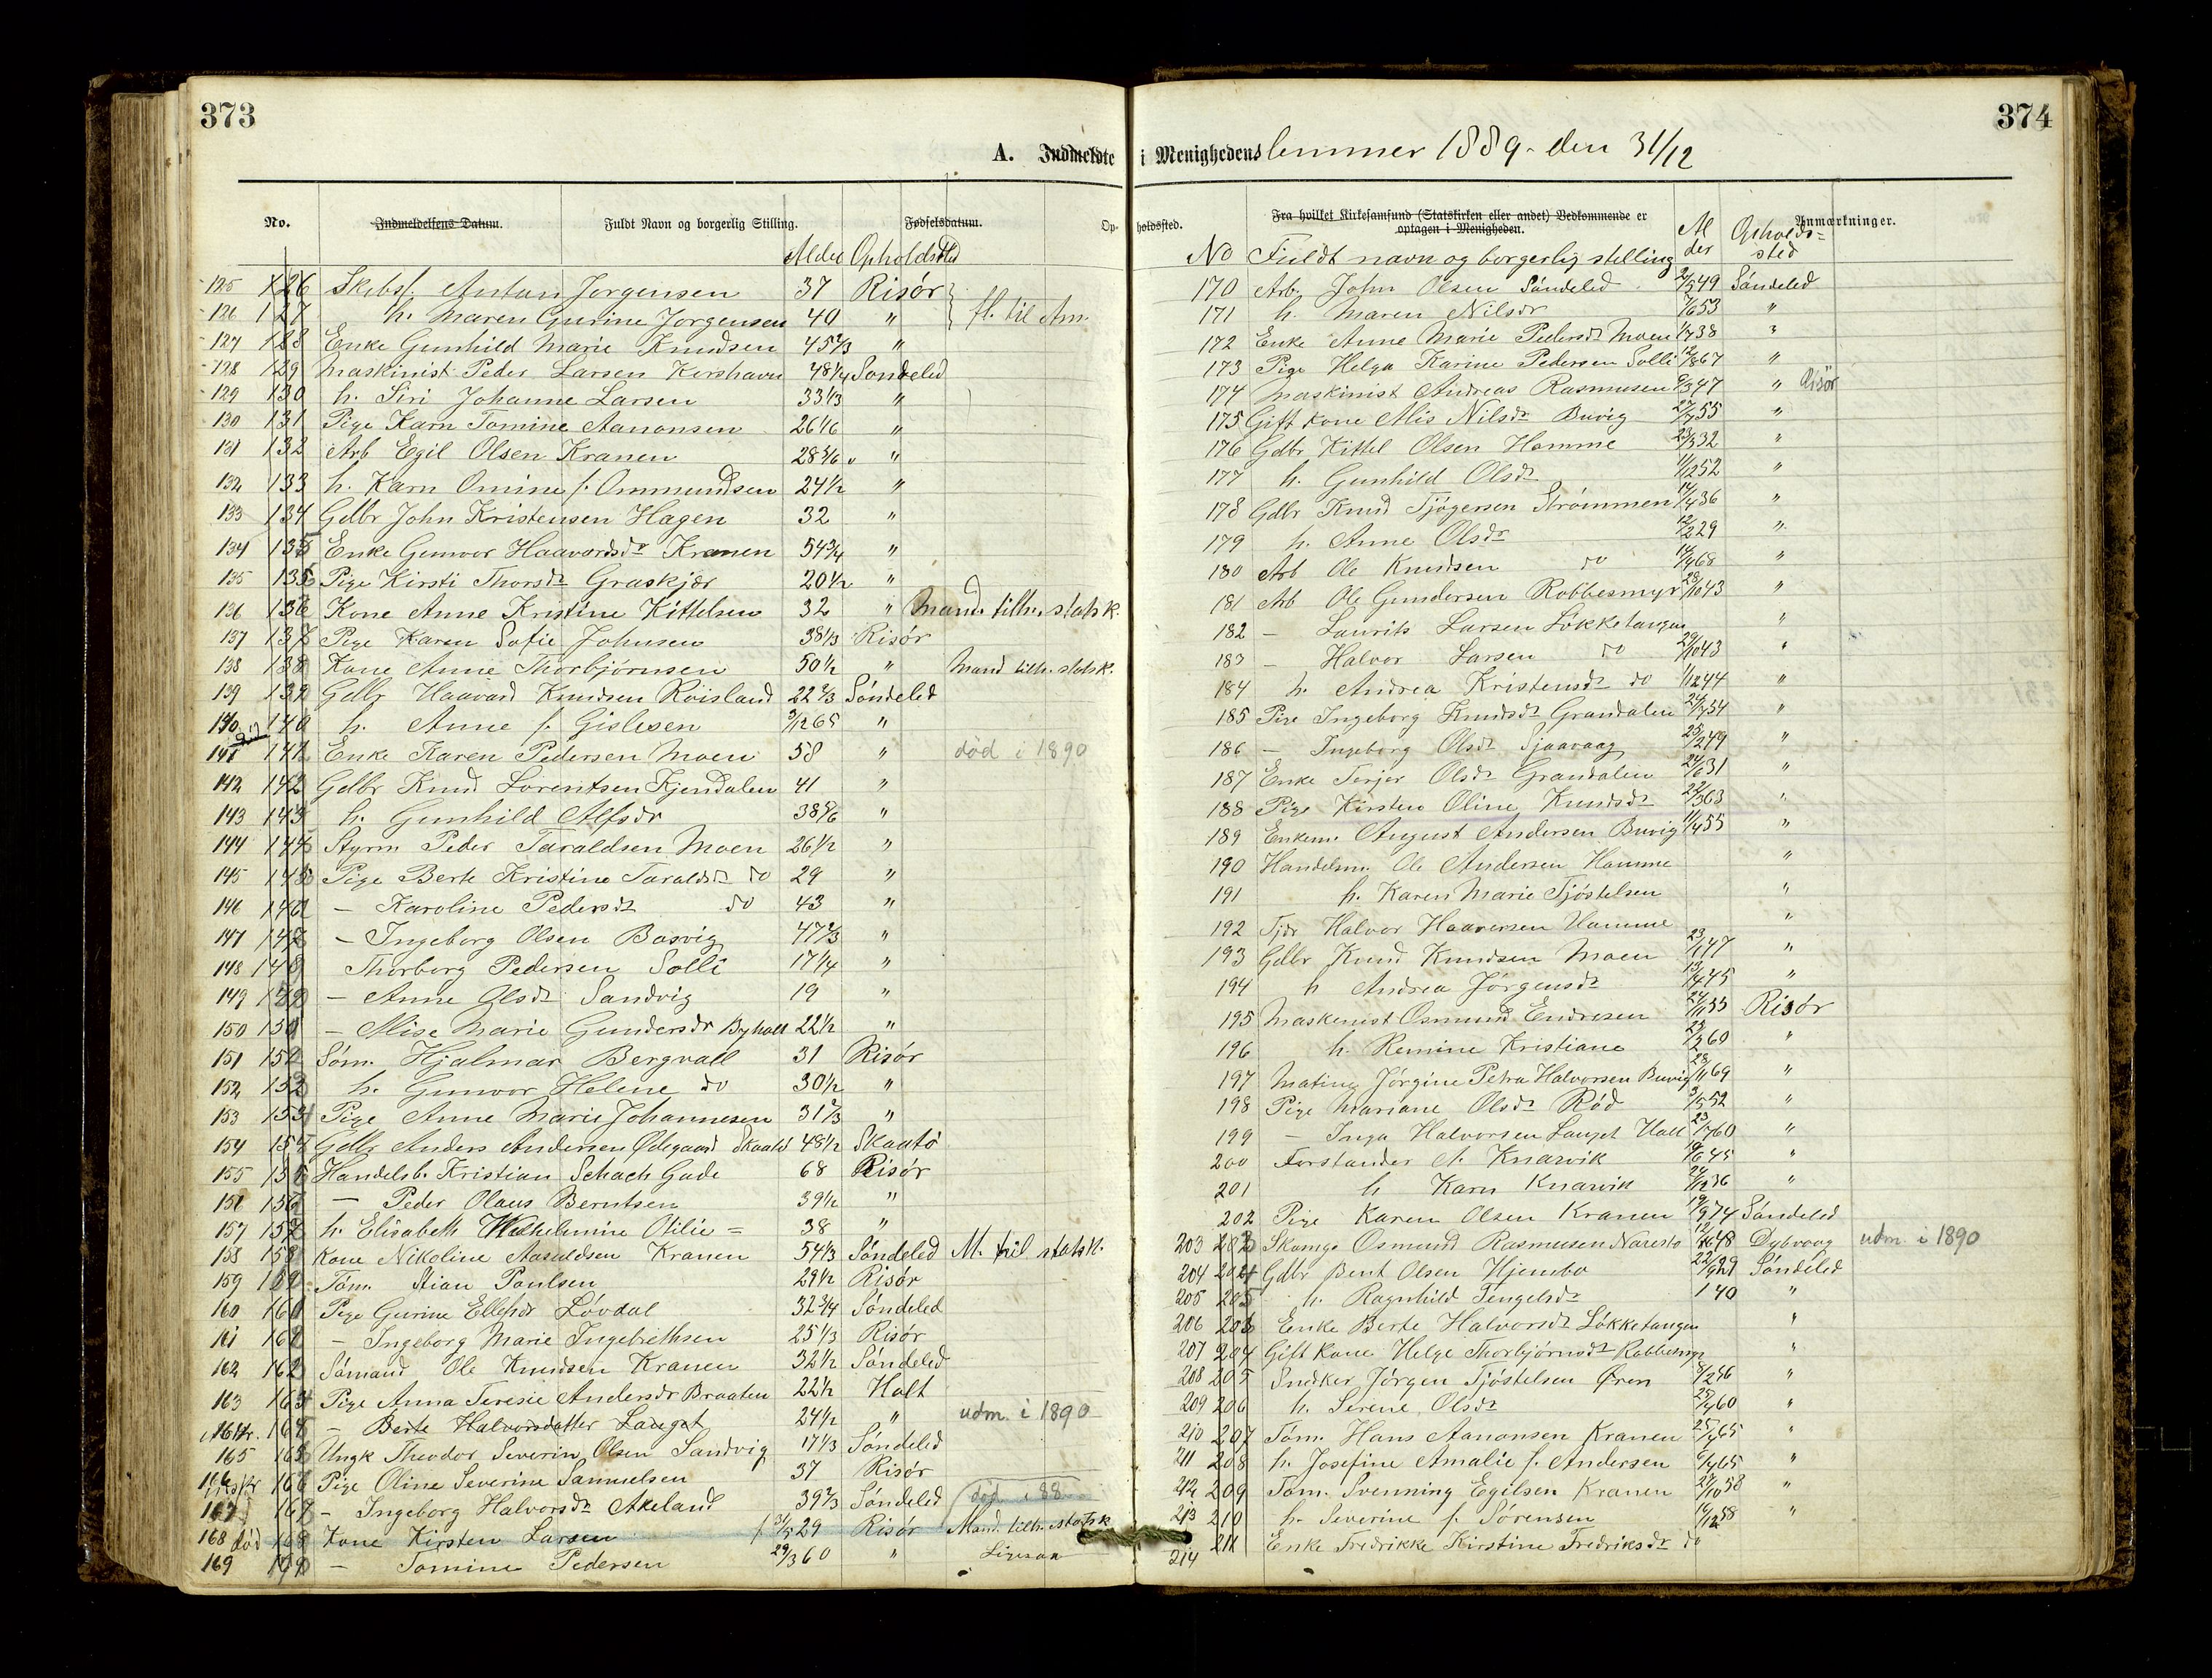 373
A. Indmeldte
No. Indmeldelsens Datum. Fuldt Navn og borgerlig Stilling. Fødselsdatum. Op-
Alder Opholdssted
125 126 Skibsf. Anton Jørgensen 37 Risør
126 127 h. Maren Gurine Jørgensen 40 " fl. til Am.
127 128 Enke Gunhild Marie Knudsen 45 2/3 "
128 129 Maskinist Peder Larsen Korshavn 48 1/4 Søndeled
129 130 h. Siri Johanne Larsen 33 1/3 "
130 131 Pige Karn Tomine Aanonsen 26 1/6 "
131 132 Arb Egil Olsen Kranen 28 5/6 "
132 133 h. Karn Omine f. Ommundsen 24 1/2 "
133 134 Gdbr John Kristensen Hagen 32 "
134 135 Enke Gunvor Haavardsdr Kranen 54 3/4 "
135 135 Pige Kirsti Thorsdr Graskjær 20 1/2 "
136 136 Kone Anne Kristine Kittelsen 32 " Mand. tilh. statsk.
137 137 Pige Karen Sofie Johnsen 38 1/3 Risør
138 138 Kone Anne Thorbjørnsen 50 1/2 " Mand tilh. statsk.
139 139 Gdbr Haavard Knudsen Røisland 22 2/3 Søndeled
140 140 h. Anne f. Gislesen 3/12 65 "
141 141 Enke Karen Pedersen Moen 58 " død i 1890
142 142 Gdbr Knud Lorentsen Kjendalen 41 "
143 143 h. Gunhild Alfsdr 38 5/6 "
144 144 Styrm Peder Taraldsen Moen 26 1/2 "
145 145 Pige Berte Kristine Taraldsdr do 29 "
146 146 – Karoline Pedersdr do 43 "
147 147 – Ingeborg Olsen Bosvig 47 2/3 "
148 148 Thorborg Pedersen Solli 17 1/4 "
149 149 – Anne Olsdr Sandvig 19 "
150 150 – Alise Marie Gundersdr Byholt 22 1/2 "
151 152 Søm. Hjalmar Bergvall 31 Risør
152 153 h. Gunvor Helene do 30 1/2 "
153 153 Pige Anne Marie Johannesen 31 2/3 "
154 154 Gdbr Anders Andersen Ødegaard Skaatø 48 1/2 Skaatø
155 155 Handelsb. Kristian Schach Gade 68 Risør
156 156 – Peder Olaus Berntsen 39 1/2 "
157 157 h. Elisabeth Wilhelmine Otilie = 38 "
158 158 Kone Nikoline Aasuldsen Kranen 54 1/3 Søndeled M. til statsk.
159 159 Tøm. Stian Paulsen 29 1/2 Risør
160 160 Pige Gurine Ellefsdr Løvdal 32 3/4 Søndeled
161 162 – Ingeborg Marie Ingebrethsen 25 1/3 Risør
162 162 Sømand Ole Knudsen Kranen 32 1/2 Søndeled
163 163 Pige Anna Teresie Andersdr Braaten 22 1/2 Holt
164 164 – Berte Halvorsdatter Lauget 24 1/2 " udm. i 1890
165 165 Ungk Theodor Severin Olsen Sandvig 17 1/3 Søndeled
166 166 Pige Oline Severine Samuelsen 37 Risør
167 167 – Ingeborg Halvorsdr Akeland 39 2/3 Søndeled død i 88
168 død 168 Kone Kirsten Larsen f 31/5 29 Risør Mand. tilh. statsk
169 – Tomine Pedersen 29/3 60 "
374
i Menighedens lemmer 1889 - den 31/12
holdssted. Fra hvilket Kirkesamfund (Statskirken eller andet) Vedkommende er optagen i Menigheden. Anmærkninger.
No Fuldt navn og borgerlig stilling Alder Opholds=sted
170 Arb. John Olsen Søndeled 2/9 49 Søndeled
171 h. Maren Nilsdr 7/6 53 "
172 Enke Anne Marie Pedersdr Moen 1/7 38 "
173 Pige Helga Karine Pedersen Solli 12/8 67 "
174 Maskinist Andreas Rasmusen 9/3 47 " Risør
175 Gift kone Alis Nilsdr Buvig 27/7 55 "
176 Gdbr Kittel Olsen Hamme 23/3 32 "
177 h. Gunhild Olsdr 11/12 52 "
178 Gdbr Knud Tjøgersen Strømmen 14/4 36 "
179 h. Anne Olsdr 12/2 29 "
180 Arb Ole Knudsen do 14/9 68 "
181 Arb Ole Gundersen Robbesmyr 28/10 43 "
182 – Laurits Larsen Løkketangen "
183 – Halvor Larsen do 29/10 43 "
184 h. Andrea Kristensdr do 1/12 44 "
185 Pige Ingeborg Knudsdr Grandalen 24/7 54 "
186 – Ingeborg Olsdr Sjaavaag 25/2 49 "
187 Enke Terjer Olsdr Grandalen 24/6 31 "
188 Pige Kirsten Oline Knudsdr 22/3 63 "
189 Enkem. August Andersen Buvig 11/4 55 "
190 Handelsm. Ole Andersen Hamme "
191 h. Karen Marie Tjøstelsen "
192 Tjdr Halvor Haaversen Hamme "
193 Gdbr Knud Knudsen Moen 23/1 47 "
194 h Andrea Jørgensdr 13/4 45 "
195 Maskenist Osmund Endresen 24/11 33 Risør
196 h. Remine Kristiane 29/3 60 "
197 Mating Jørgine Petra Halvorsen Buvig 28/11 69 "
198 Pige Mariane Olsdr Rød 3/5 52 "
199 – Inga Halvorsen Lauget Holt 23/7 60 "
200 Forstander A. Knarvik 19/6 45 "
201 h Karn Knarvik 24/12 36 "
202 Pige Karen Olsen Kranen 19/9 74 Søndeled
203 202 Skomgr Osmund Rasmusen Naresto 12/10 48 Dybvaag udm. i 1890
204 204 Gdbr Bent Olsen Hjembo 22/9 29 Søndeled
205 205 h. Ragnhild Tengelsdr 1 40 "
206 206 Enke Berte Halvorsdr Løkketangen "
207 204 Gift kone Helge Thorbjørnsdr Robbesmyr "
208 205 Snedker Jørgen Tjøstelsen Øren 8/2 46 "
209 206 h. Serine Olsdr 25/7 60 "
210 207 Tøm. Hans Aanonsen Kranen 25/4 65 "
211 208 h. Josefine Amalie f. Andersen 6/4 65 "
212 209 Tøm. Svenning Egilsen Kranen 27/10 58 "
213 210 h. Severine f. Sørensen 16/12 58 "
214 211 Enke Fredrikke Kirstine Fredriksdr do